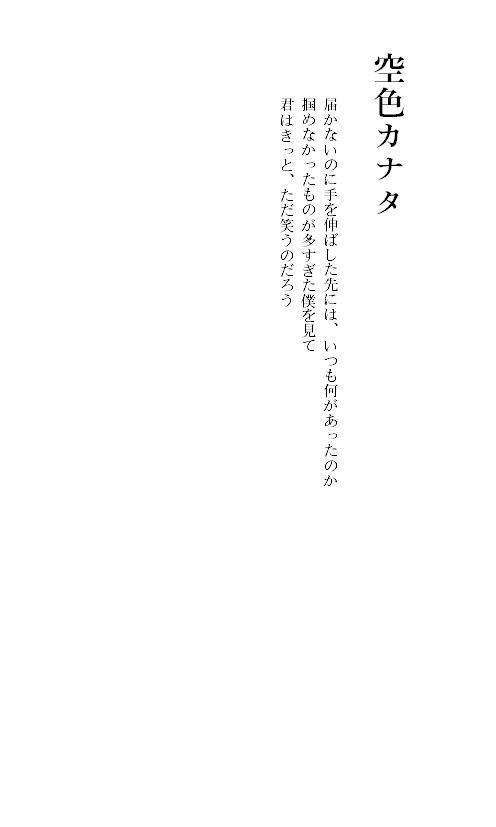 空色カナタ
届かないのに手を伸ばした先には、いつも何があったのか
掴めなかったものが多すぎた僕を見て
君はきっと、ただ笑うのだろう